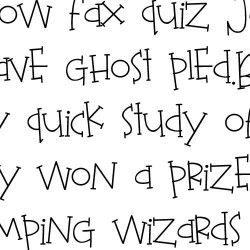 ow fax quiz J
ave ghost pled.B
y quick study of
y won a prize
mping wizards